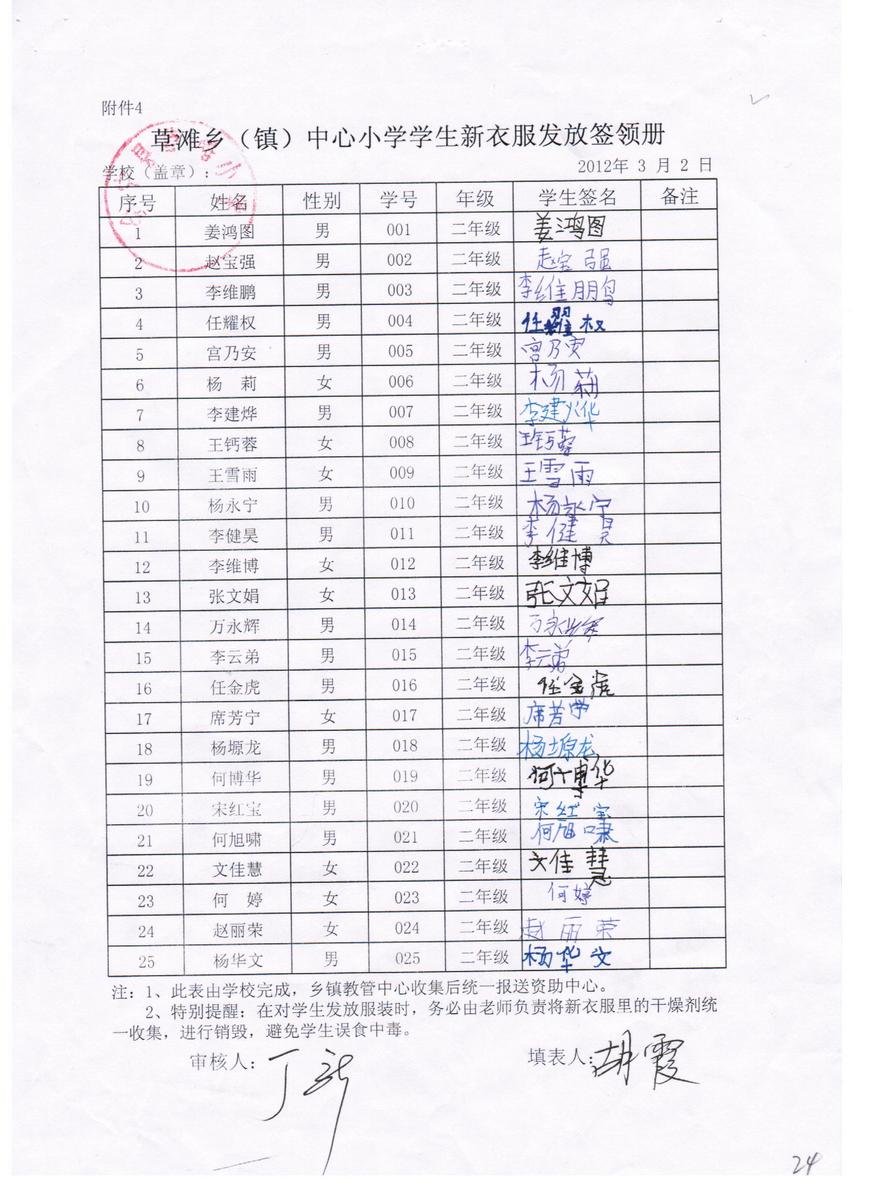 附件4
草滩乡（镇）中心小学学生新衣服发放签领册
学校（盖章）：　2012年 3 月 2 日
序号 姓名 性别 学号 年级 学生签名 备注
1 姜鸿图 男 001 二年级 姜鸿图
2 赵宝强 男 002 二年级 赵宝强
3 李维鹏 男 003 二年级 李维鹏
4 任耀权 男 004 二年级 任耀权
5 宫乃安 男 005 二年级 宫乃安
6 杨 莉 女 006 二年级 杨莉
7 李建烨 男 007 二年级 李建烨
8 王钙蓉 女 008 二年级 王钙蓉
9 王雪雨 女 009 二年级 王雪雨
10 杨永宁 男 010 二年级 杨永宁
11 李健昊 男 011 二年级 李健昊
12 李维博 女 012 二年级 李维博
13 张文娟 女 013 二年级 张文娟
14 万永辉 男 014 二年级 万永辉
15 李云弟 男 015 二年级 李云弟
16 任金虎 男 016 二年级 任金虎
17 席芳宁 女 017 二年级 席芳宁
18 杨塬龙 男 018 二年级 杨塬龙
19 何博华 男 019 二年级 何博华
20 宋红宝 男 020 二年级 宋红宝
21 何旭啸 男 021 二年级 何旭啸
22 文佳慧 女 022 二年级 文佳慧
23 何 婷 女 023 二年级 何婷
24 赵丽荣 女 024 二年级 赵丽荣
25 杨华文 男 025 二年级 杨华文
注：1、此表由学校完成，乡镇教管中心收集后统一报送资助中心。
2、特别提醒：在对学生发放服装时，务必由老师负责将新衣服里的干燥剂统
一收集，进行销毁，避免学生误食中毒。
审核人：　填表人：胡霞
24